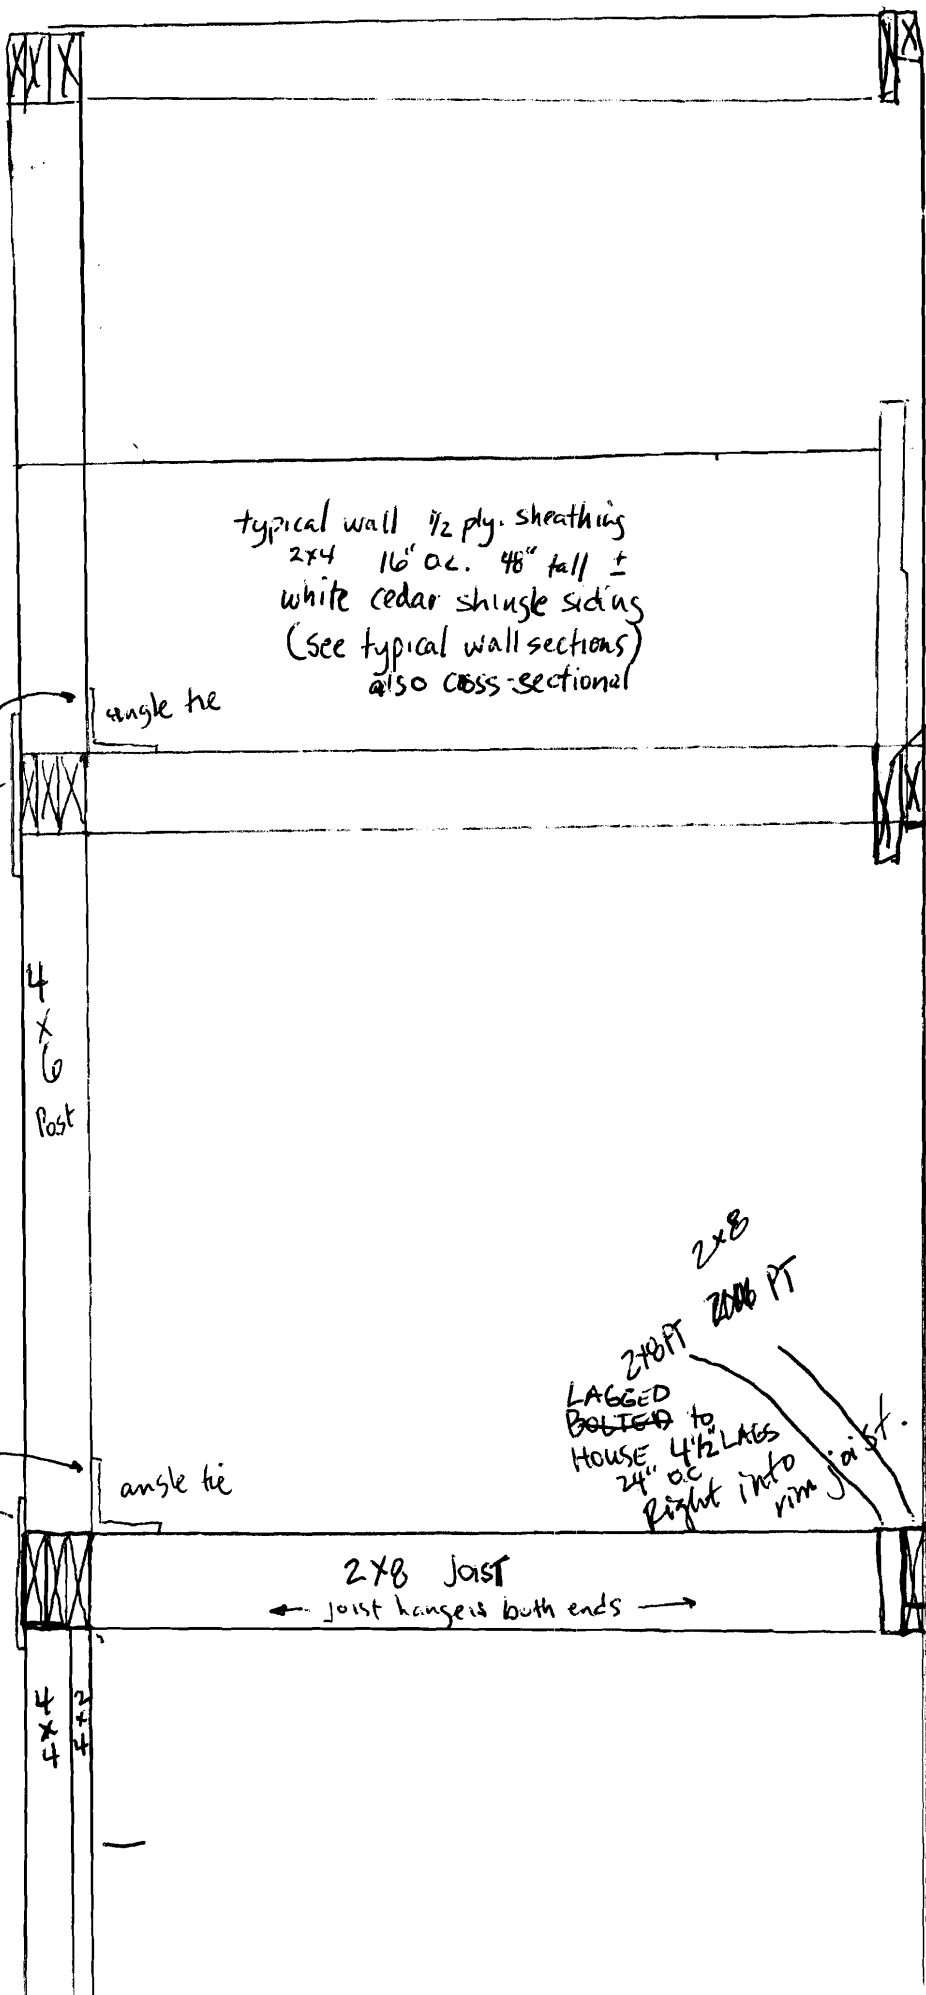 typical wall 1/2 ply. sheathing
2x4 16" o.c. 48" tall ±
white cedar shingle siding
(see typical wall sections)
also cross-sectional
angle tie
4
x
6
Post
2x8
PT
2x8 PT
LAGGED
BOLTED to
HOUSE 4 1/2" LAGS
24" o.c
Right into
rim joist.
angle tie
2x8 Joist
← joist hangers both ends →
4
x
4
2
x
4